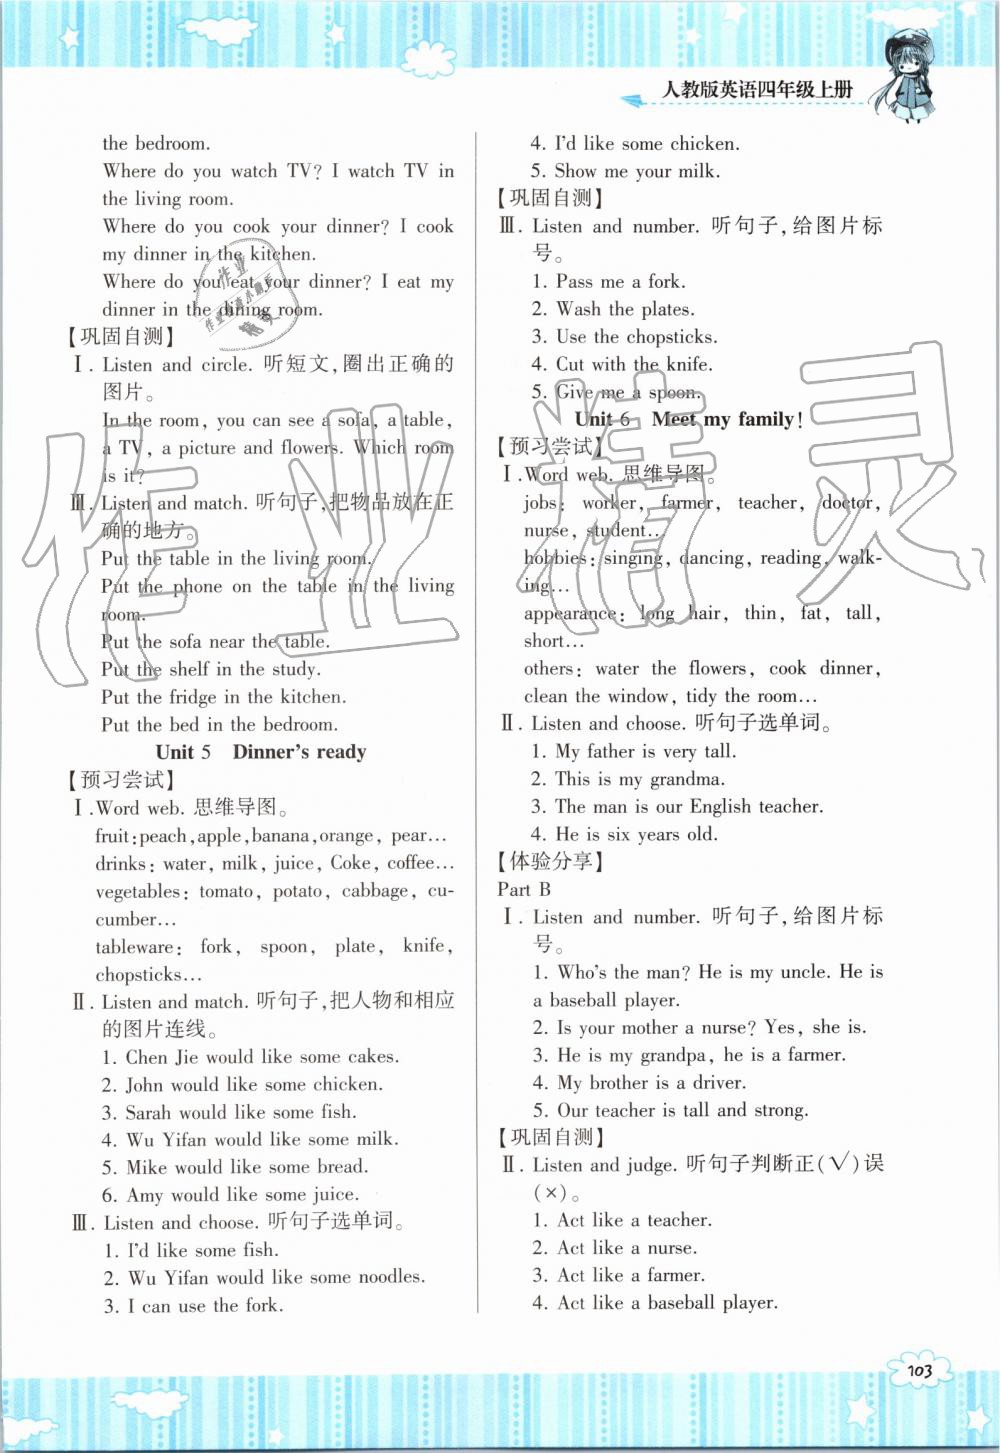 人教版英语四年级上册
the bedroom.
Where do you watch TV? I watch TV in
the living room.
Where do you cook your dinner? I cook
my dinner in the kitchen.
Where do you eat your dinner? I eat my
dinner in the dining room.
【巩固自测】
Ⅰ. Listen and circle. 听短文,圈出正确的
图片。
In the room, you can see a sofa, a table,
a TV, a picture and flowers. Which room
is it?
Ⅲ. Listen and match. 听句子,把物品放在正
确的地方。
Put the table in the living room.
Put the phone on the table in the living
room.
Put the sofa near the table.
Put the shelf in the study.
Put the fridge in the kitchen.
Put the bed in the bedroom.
Unit 5 Dinner's ready
【预习尝试】
Ⅰ.Word web. 思维导图。
fruit:peach,apple,banana,orange, pear...
drinks: water, milk, juice, Coke, coffee...
vegetables: tomato, potato, cabbage, cu-
cumber...
tableware: fork, spoon, plate, knife,
chopsticks...
Ⅱ. Listen and match. 听句子,把人物和相应
的图片连线。
1. Chen Jie would like some cakes.
2. John would like some chicken.
3. Sarah would like some fish.
4. Wu Yifan would like some milk.
5. Mike would like some bread.
6. Amy would like some juice.
Ⅲ. Listen and choose. 听句子选单词。
1. I'd like some fish.
2. Wu Yifan would like some noodles.
3. I can use the fork.
4. I'd like some chicken.
5. Show me your milk.
【巩固自测】
Ⅲ. Listen and number. 听句子,给图片标
号。
1. Pass me a fork.
2. Wash the plates.
3. Use the chopsticks.
4. Cut with the knife.
5. Give me a spoon.
Unit 6 Meet my family!
【预习尝试】
Ⅰ.Word web. 思维导图。
jobs: worker, farmer, teacher, doctor,
nurse, student...
hobbies: singing, dancing, reading, walk-
ing...
appearance: long hair, thin, fat, tall,
short...
others: water the flowers, cook dinner,
clean the window, tidy the room...
Ⅱ. Listen and choose. 听句子选单词。
1. My father is very tall.
2. This is my grandma.
3. The man is our English teacher.
4. He is six years old.
【体验分享】
Part B
Ⅰ. Listen and number. 听句子,给图片标
号。
1. Who's the man? He is my uncle. He is
a baseball player.
2. Is your mother a nurse? Yes, she is.
3. He is my grandpa, he is a farmer.
4. My brother is a driver.
5. Our teacher is tall and strong.
【巩固自测】
Ⅱ. Listen and judge. 听句子判断正(√)误
(×)。
1. Act like a teacher.
2. Act like a nurse.
3. Act like a farmer.
4. Act like a baseball player.
103
作业精灵